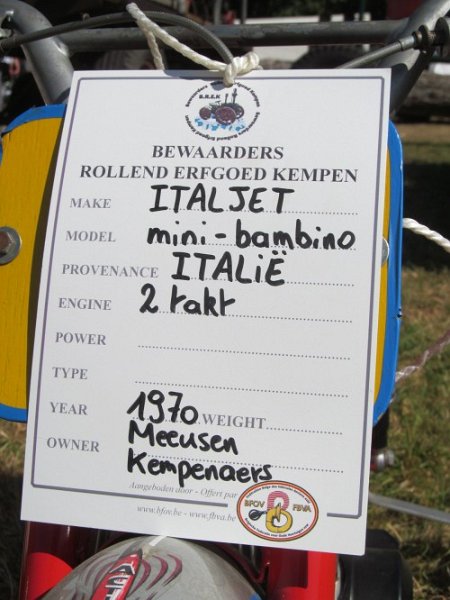 B.R.E.K
BEWAARDERS
ROLLEND ERFGOED KEMPEN
MAKE ITALJET
MODEL mini-bambino
PROVENANCE ITALIË
ENGINE 2 takt
POWER
TYPE
YEAR 1970 WEIGHT
OWNER Meeusen
Kempenaers
Aangeboden door - Offert par
www.bfov.be - www.fbva.be
BFOV FBVA